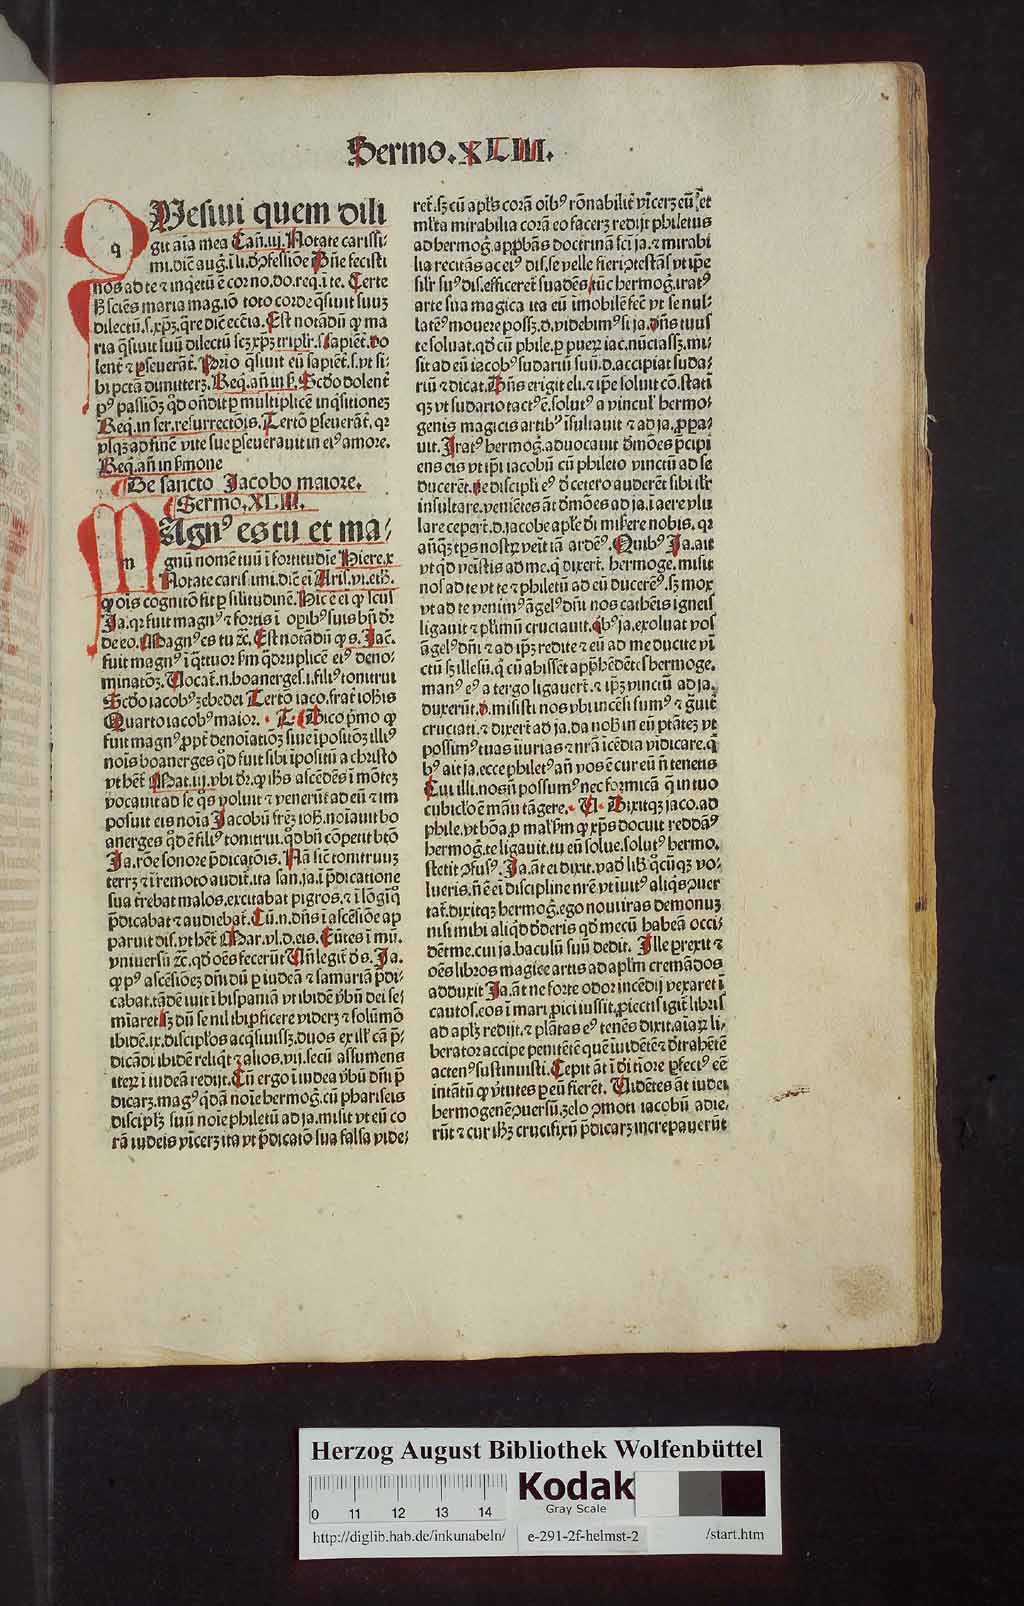 Sermo.XLIII.
QUesiui quem dili
git aīa mea Can̄.iij. Notate carissi-
mi. dic̄ aug. ī li. d̄ ꝯfessiōe Dn̄e fecisti
nos ad te ⁊ inq̄etū ē cor no. do. req. ī te. Certe
h̄ sciēs maria mag. iō toto corde q̄siuit suuꝫ
dilectū. s. xp̄ꝫ. q̄re dic̄ ecc̄ia. Est notādū ꝙ ma
ria q̄siuit suū dilectū scꝫ xp̄ꝫ tripl'r. s. sapiēt̄. do
lent̄ ⁊ ꝑseuerāt̄. Prīo q̄siuit eū sapiēt̄. s. vt si-
bi pctā dimitterꝫ. Req. an̄ in p̄. Scd̄o dolent̄
pꝰ passiōꝫ qd̄ on̄dit ꝑ multiplicē inq̄sitionēꝫ
Req. in ser. resurrectōis. Tertō ꝑseuerāt̄. qꝛ
vsqꝫ ad finē vite sue ꝑseuerauit in eiꝰ amore.
Req. an̄ in ẜmone
De sancto Jacobo maiore.
Sermo.XLIII.
MAgnꝰ es tu et ma-
gnū nomē tuū ī fortitudīe Hiere. x
Notate carissimi. dic̄ ei Aris. vi. eth.
ꝙ ois cognitō fit ꝑ silitudinē. Hic ē ei ꝙ scūs
Ja. qꝛ fuit magnꝰ ⁊ fortis ī oꝑibꝰ suis bn̄ dr̄
de eo. Magnꝰ es tu ⁊c̄. Est notādū ꝙ s. Jac̄.
fuit magnꝰ ī q̄ttuor ẜm q̄druplicē eiꝰ deno-
minatōꝫ. Uocat̄. n. boanerges. i. filiꝰ tonitrui
Scd̄o iacobꝰ ꝫebedei Tertō iaco. frat̄ ioh̄is
Quarto iacobꝰ maior. T. Dico p̄mo ꝙ
fuit magnꝰ ꝓpt̄ denoīatiōꝫ siue īpositōꝫ illiꝰ
nois boanerges qd̄ fuit sibi īpositū a christo
vt h̄et̄ Mat. iij. vbi dr̄. ꝙ ih̄s ascēdēs ī mōteꝫ
vocauit ad se q̄s voluit ⁊ venerūt ad eū ⁊ im
posuit eis noīa Jacobū frēꝫ ioh. noīauit bo
anerges qd̄ ē filiꝰ tonitrui. qd̄ bn̄ cōpetit btō
Ja. rōe sonore p̄dicatōis. Nā sic̄ tonitruuꝫ
terrꝫ ⁊ ī remoto auditur̄. ita san. ja. ī p̄dicatione
sua t̄rebat malos. excitabat pigros. ⁊ ī lōgīq̄
p̄dicabat ⁊ audiebat̄. Cū. n. dn̄s ī ascēsiōe ap
paruit dis. vt h̄et̄ Mar. vl. d. eis. Eūtes ī mū.
vniuersū ⁊c̄. qd̄ oēs fecerūt Un̄ legit̄ d̄ s. Ja.
ꝙ pꝰ ascēsiōeꝫ dn̄i dū ꝑ iudeā ⁊ samariā p̄di-
cabat. tādē iuit ī hispaniā vt ibidē v̄bū dei se-
mīaret ꝫ dū se nil ibi ꝓficere viderꝫ ⁊ solū mō
ibidē. ix. discipl'os acq̄siuissꝫ. duos ex ill' cā p̄-
dicādi ibidē reliq̄t ⁊ alios. vij. secū assumens
iteꝝ ī iudeā redijt. Cū ergo ī iudea v̄bū dn̄i p̄
dicarꝫ. magꝰ qd̄ā noīe hermoḡ. cū phariseis
discipl'ꝫ suū noīe philetū ad ja. misit vt eū co
rā iudeis vīcerꝫ ita vt p̄dicatō sua falsa vide-
ret̄. sꝫ cū apl's corā oībꝰ rōnabilit̄ vīcerꝫ eū et
ml'ta mirabilia corā eo facerꝫ redijt philetus
ad hermoḡ. app̄bās doctrinā sc̄i ja. ⁊ mirabi
lia recitās ac eiꝰ dis. se velle fieri ꝓtestās̄ vt ip̄e
silr̄ suꝰ dis. efficeret̄ suadēs tūc hermoḡ. iratꝰ
arte sua magica ita eū īmobilē fēc̄ vt se nul-
latēꝰ mouere possꝫ. d. videbimꝰ si ja. dn̄s tuus
te soluat. qd̄ cū phile. ꝑ pueꝝ iac. nūciassꝫ. mi-
sit ad eū iacobꝰ sudariū suū. d. accipiat suda-
riū ⁊ dicat. Dn̄s erigit eli. ⁊ ip̄e soluit cō. stati
qꝫ vt sudario tactꝰ ē. solutꝰ a vincul' hermo-
genis magicis artibꝰ īsultauit ⁊ ad ja. ꝓpa-
uit. Iratꝰ hermoḡ. aduocauit d̄mōes p̄cipi
ens eis vt ip̄i iacobū cū phileto vinctū ad se
ducerēt. ne discipli eꝰ d̄ cetero auderēt sibi ill'r
insultare. veniētes āt d̄mōes ad ja. ī aere vlu
lare ceperūt. d. jacobe apl'e dī misere nobis. qꝛ
anq̄ꝫ tp̄s nostrꝫ veīt iā ardēꝰ. Quibꝰ Ja. ait
vt qd̄ veistis ad me. q̄ dixert̄. hermoge. misit
nos ad te vt te ⁊ philetū ad eū ducerēꝰ. sꝫ mox
vt ad te venimꝰ āgelꝰ dn̄i nos cathēis igneis
ligauit ⁊ pl'imū cruciauit. Qb̄ꝰ ja. exoluat vos
āgelꝰ dn̄i ⁊ ad ip̄ꝫ redite ⁊ eū ad me ducite vī
ctū sꝫ illesū. q̄ cū abissēt app̄hēdētes hermoge.
manꝰ eꝰ a tergo ligauert̄. ⁊ ip̄ꝫ vinctū ad ja.
duxerūt. d. misisti nos vbi incēsi sumꝰ ⁊ grauit̄
cruciati. ⁊ dixert̄ ad ja. da nob̄ in eū ptātēꝫ vt
possimꝰ tuas iniurias ⁊ nr̄ā īcēdia vidicare. q̄
bꝰ ait ja. ecce philetꝰ an̄ vos ē cur eū n̄ tenetis
Cui illi. nos n̄ possumꝰ nec formicā q̄ in tuo
cubicl'o ē manu tāgere. U. Dixitqꝫ jaco. ad
phile. vt bōa ꝓ mal' ẜm ꝙ xp̄s docuit reddāꝰ
hermoḡ. te ligauit. tu eū solue. solutꝰ hermo.
stetit ꝯfusꝰ. Ja. āt ei dixit. vad̄ lib̄ q̄cūqꝫ vo-
lueris. n̄ ē ei discipline nr̄e vt iuitꝰ aliq̄s ꝯuer
tat̄. dixitqꝫ hermoḡ. ego noui iras demonuꝫ
nisi mihi aliqd̄ d̄deris qd̄ mecū habeā occi-
dēt me. cui ja. baculū suū dedit. Ille ꝑrexit ⁊
oēs libros magice artis ad apl'm cremādos
adduxit Ja. āt ne forte odor incēdij vexaret ī
cautos. eos ī mari ꝓici iussit. ꝓiectis igit̄ libris
ad apl'ꝫ redijt. ⁊ plātas eꝰ tenēs dixit. aiaꝝ li-
berator accipe penitētē quē iuidētē ⁊ d̄trahētē
actenꝰ sustinuisti. Cepit āt ī dī tiōre ꝑfectꝰ eē
intātū ꝙ v̄tutes ꝑ eū fierēt. Uidētes āt iudei
hermogenē ꝯuersū. ꝫelo ꝯmoti iacobū adie-
rūt ⁊ cur ih̄ꝫ crucifixū p̄dicarꝫ increpauerūt
Herzog August Bibliothek Wolfenbüttel
0 11 12 13 14
Kodak
Gray Scale
http://diglib.hab.de/inkunabeln/ e-291-2f-helmst-2 /start.htm